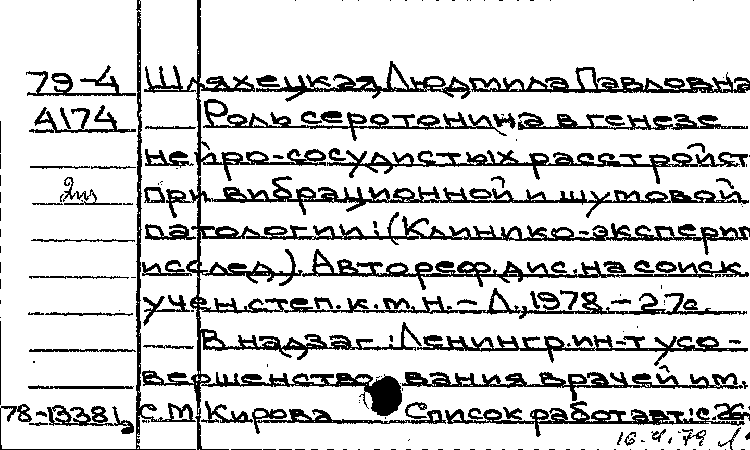 79-4 Шляхецкая, Людмила Павловна
4174 Роль серотонина в генезе
нейро-сосудистых расстройст
при вибрационной и шумовой
патологии: (Клинико-эксперим
исслед.). Автореф. дис. на соиск.
учен. степ. к.м.н. - Л., 1978. - 27с.
В надзаг.: Ленингр. ин-т усо-
вершенствования врачей им.
78-13381 С.М. Кирова Список работ авт.: с.
16.4.79